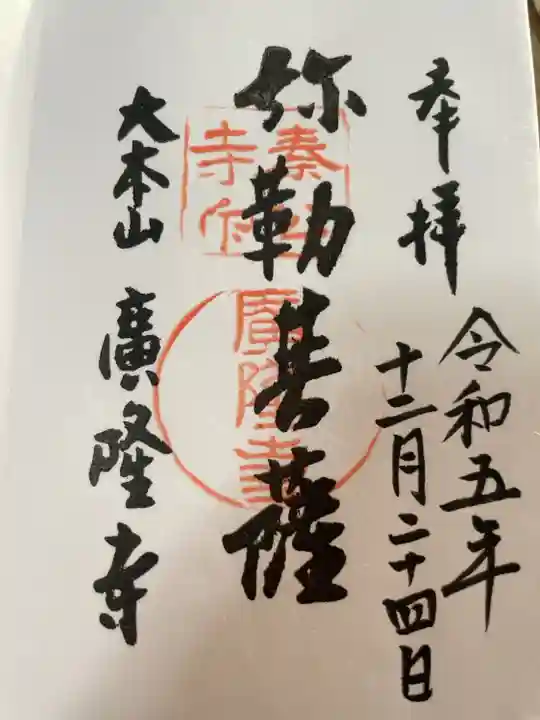 奉拝
令和五年
十二月二十四日
弥勒菩薩
廣隆寺
大本山 廣隆寺